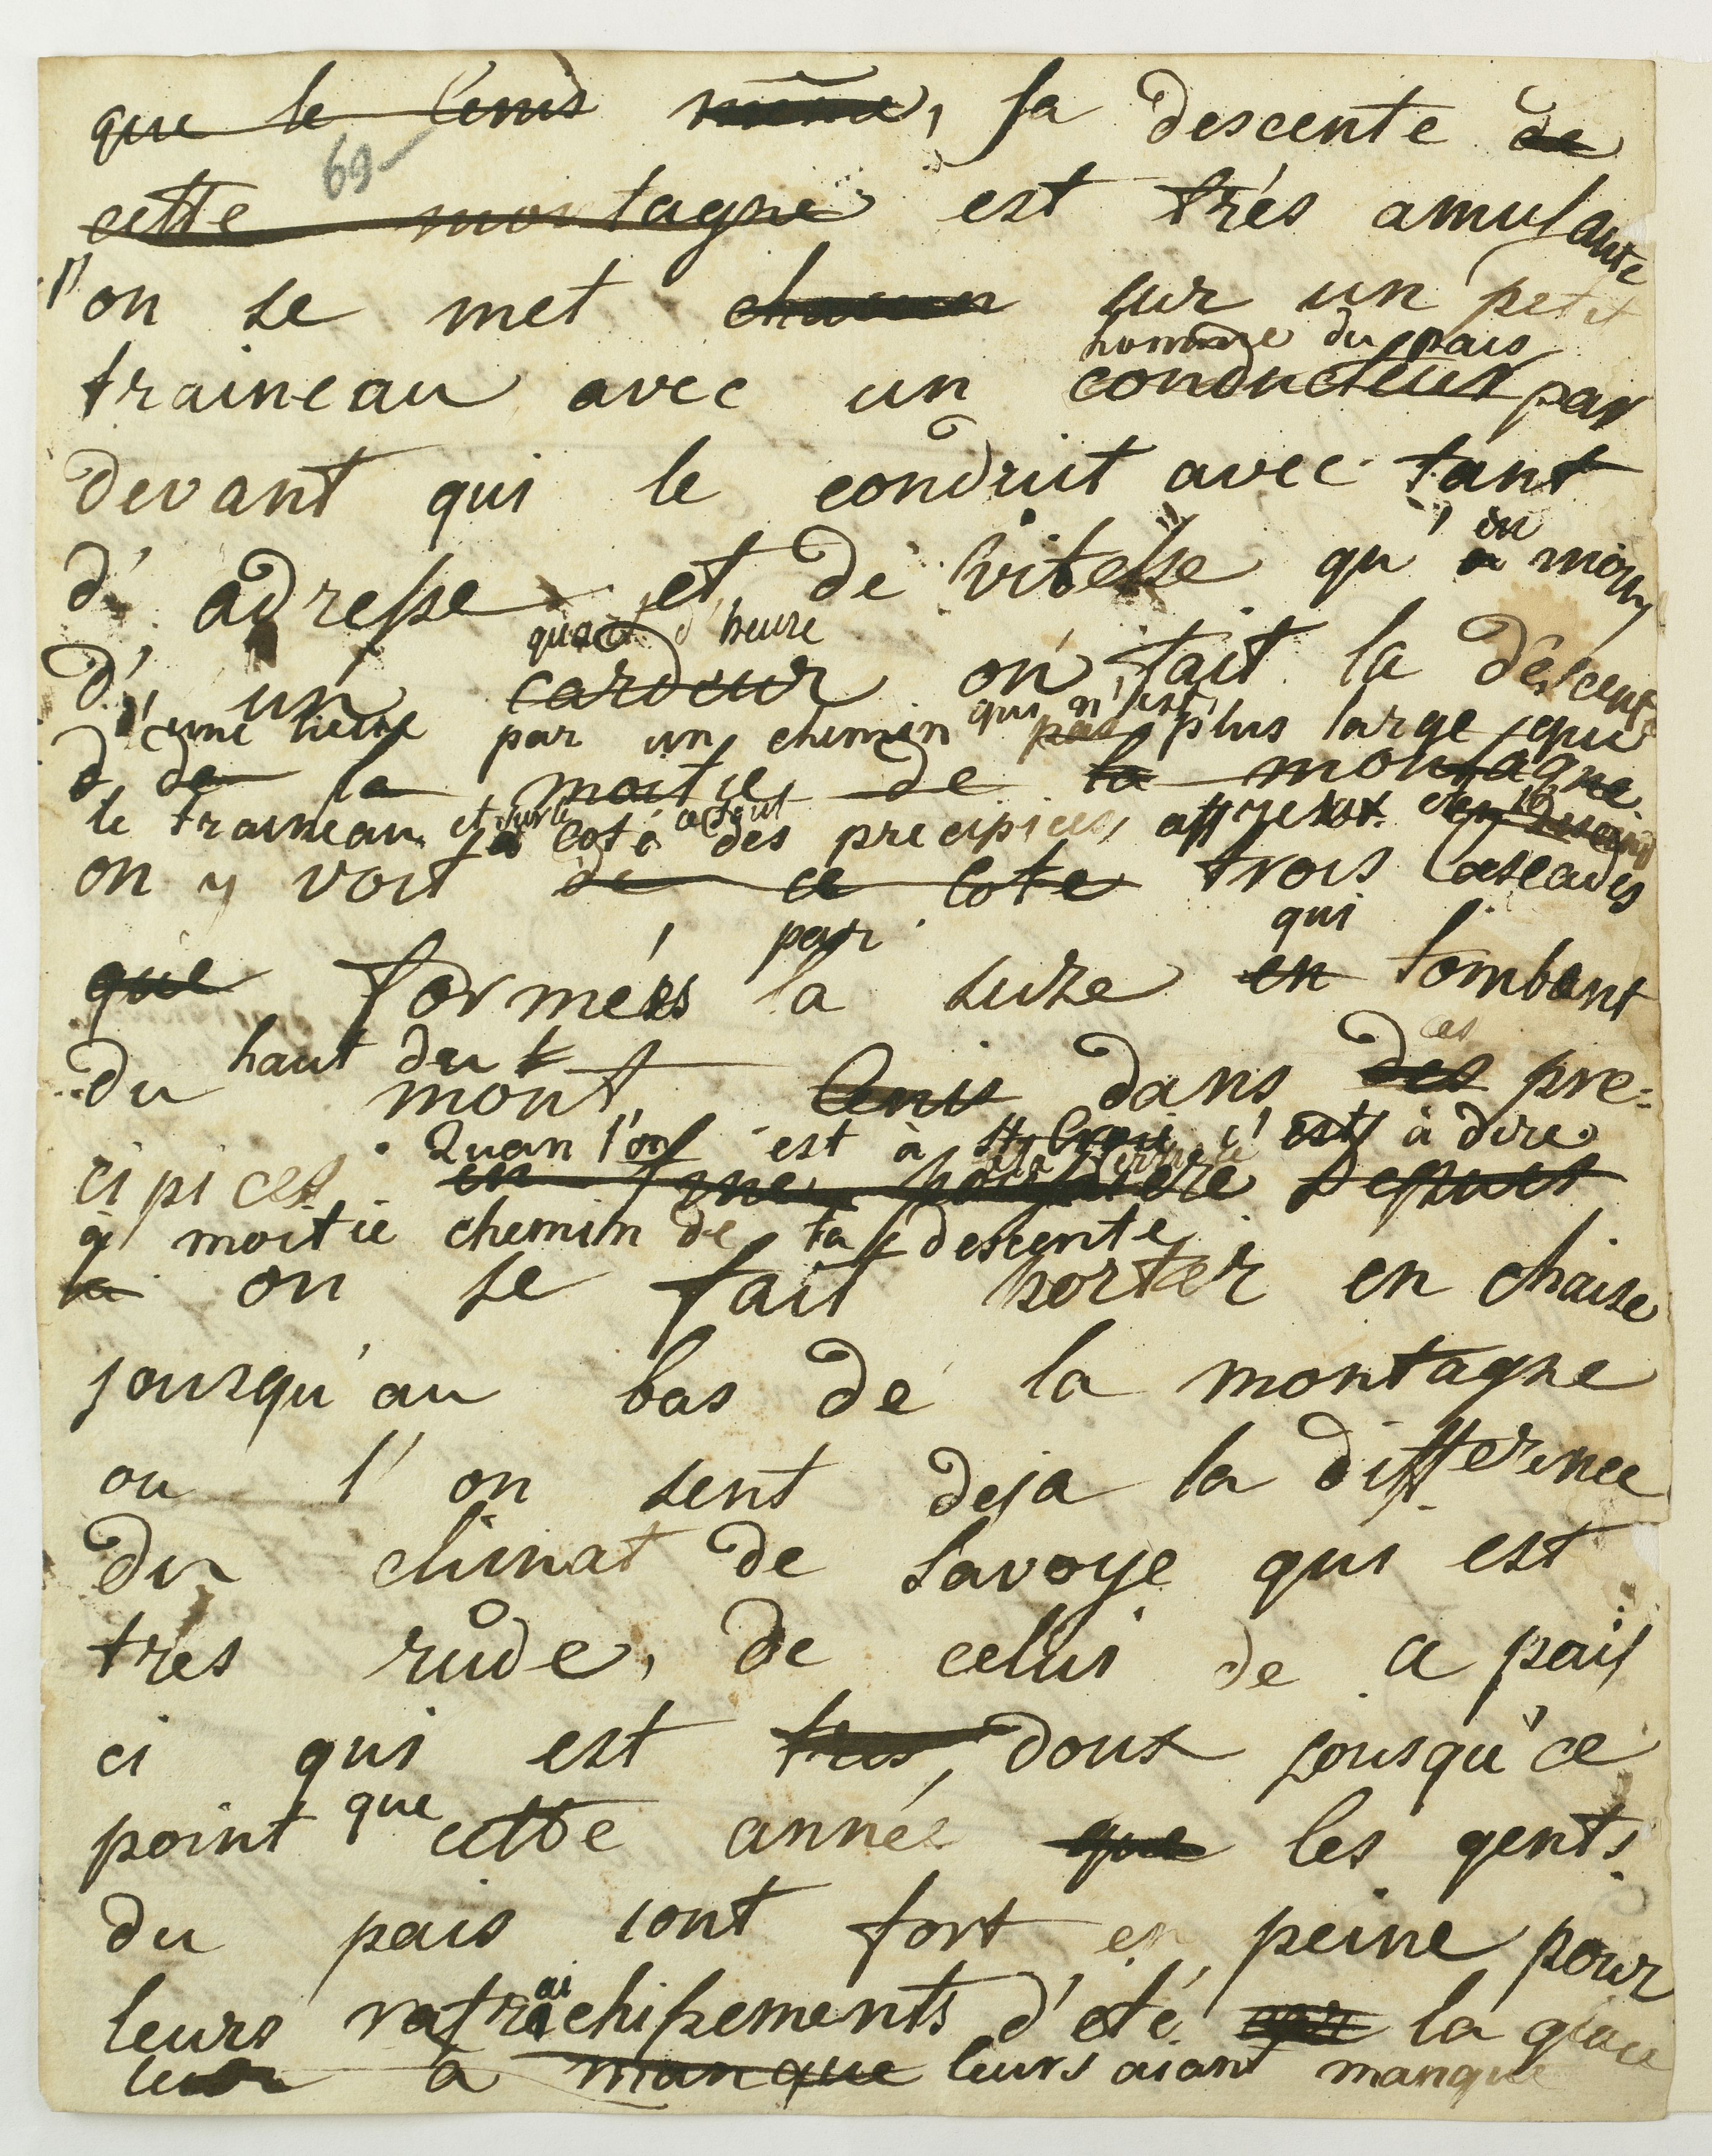 que le Cenis même, sa descente de
69
cette montagne est trés amusante
l'on se met chacun sur un petit
homme du pais
traineau avec un conducteur par
devant qui le conduit avec tant
d'adresse et de vitesse qu'en moin
quart d'heure
d'un cardeur on fait la descente
d'une lieue par un chemin qui n'est pas plus large que
de la moitie de la montagne
le traineau et sur le coté des precipices affreux
on y voit de ce cote trois Cascades
par qui
que formées la suze en tombant
haut du ces
du mont Cenis dans des pre=
Quan l'on est à c'est à dire
cipices en une poussiere depuis
à moitie chemin de la descente
la on se fait porter en chaise
jousqu'au bas de la montagne
ou l'on sent deja la difference
du climat de Savoye qui est
tres rude, de celui de ce pais
ci qui est tres, doux jousqu'ce
point que cette année que les gents
du pais sont fort en peine pour
leurs rafraichissements d'eté car la glace
leur a manque leurs aiant manqué